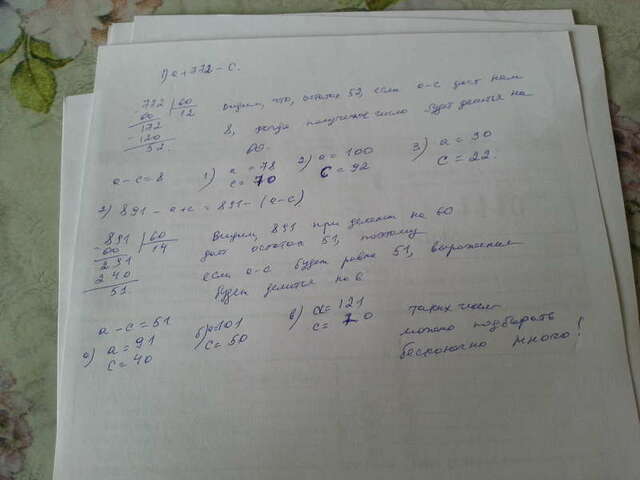 1) a+772-c.
772 | 60
60 12
172
-120
52.
Видим, что, остаток 52, если a-c даст нам
8, тогда полученное число будет делится на
60.
a-c=8 1) a=78 2) a=100 3) a=30
c=70 c=92 c=22.
2) 891-a+c=891-(a-c)
891 | 60
-60 14
291
240
51.
Видим, 891 при делении на 60
даст остаток 51, поэтому
если a-c будет равно 51, выражение
будет делится на 6
a-c=51
а) a=91 б) a=101 в) a=121
c=40 c=50 c=70
таких чисел
можно подбирать
бесконечно много!